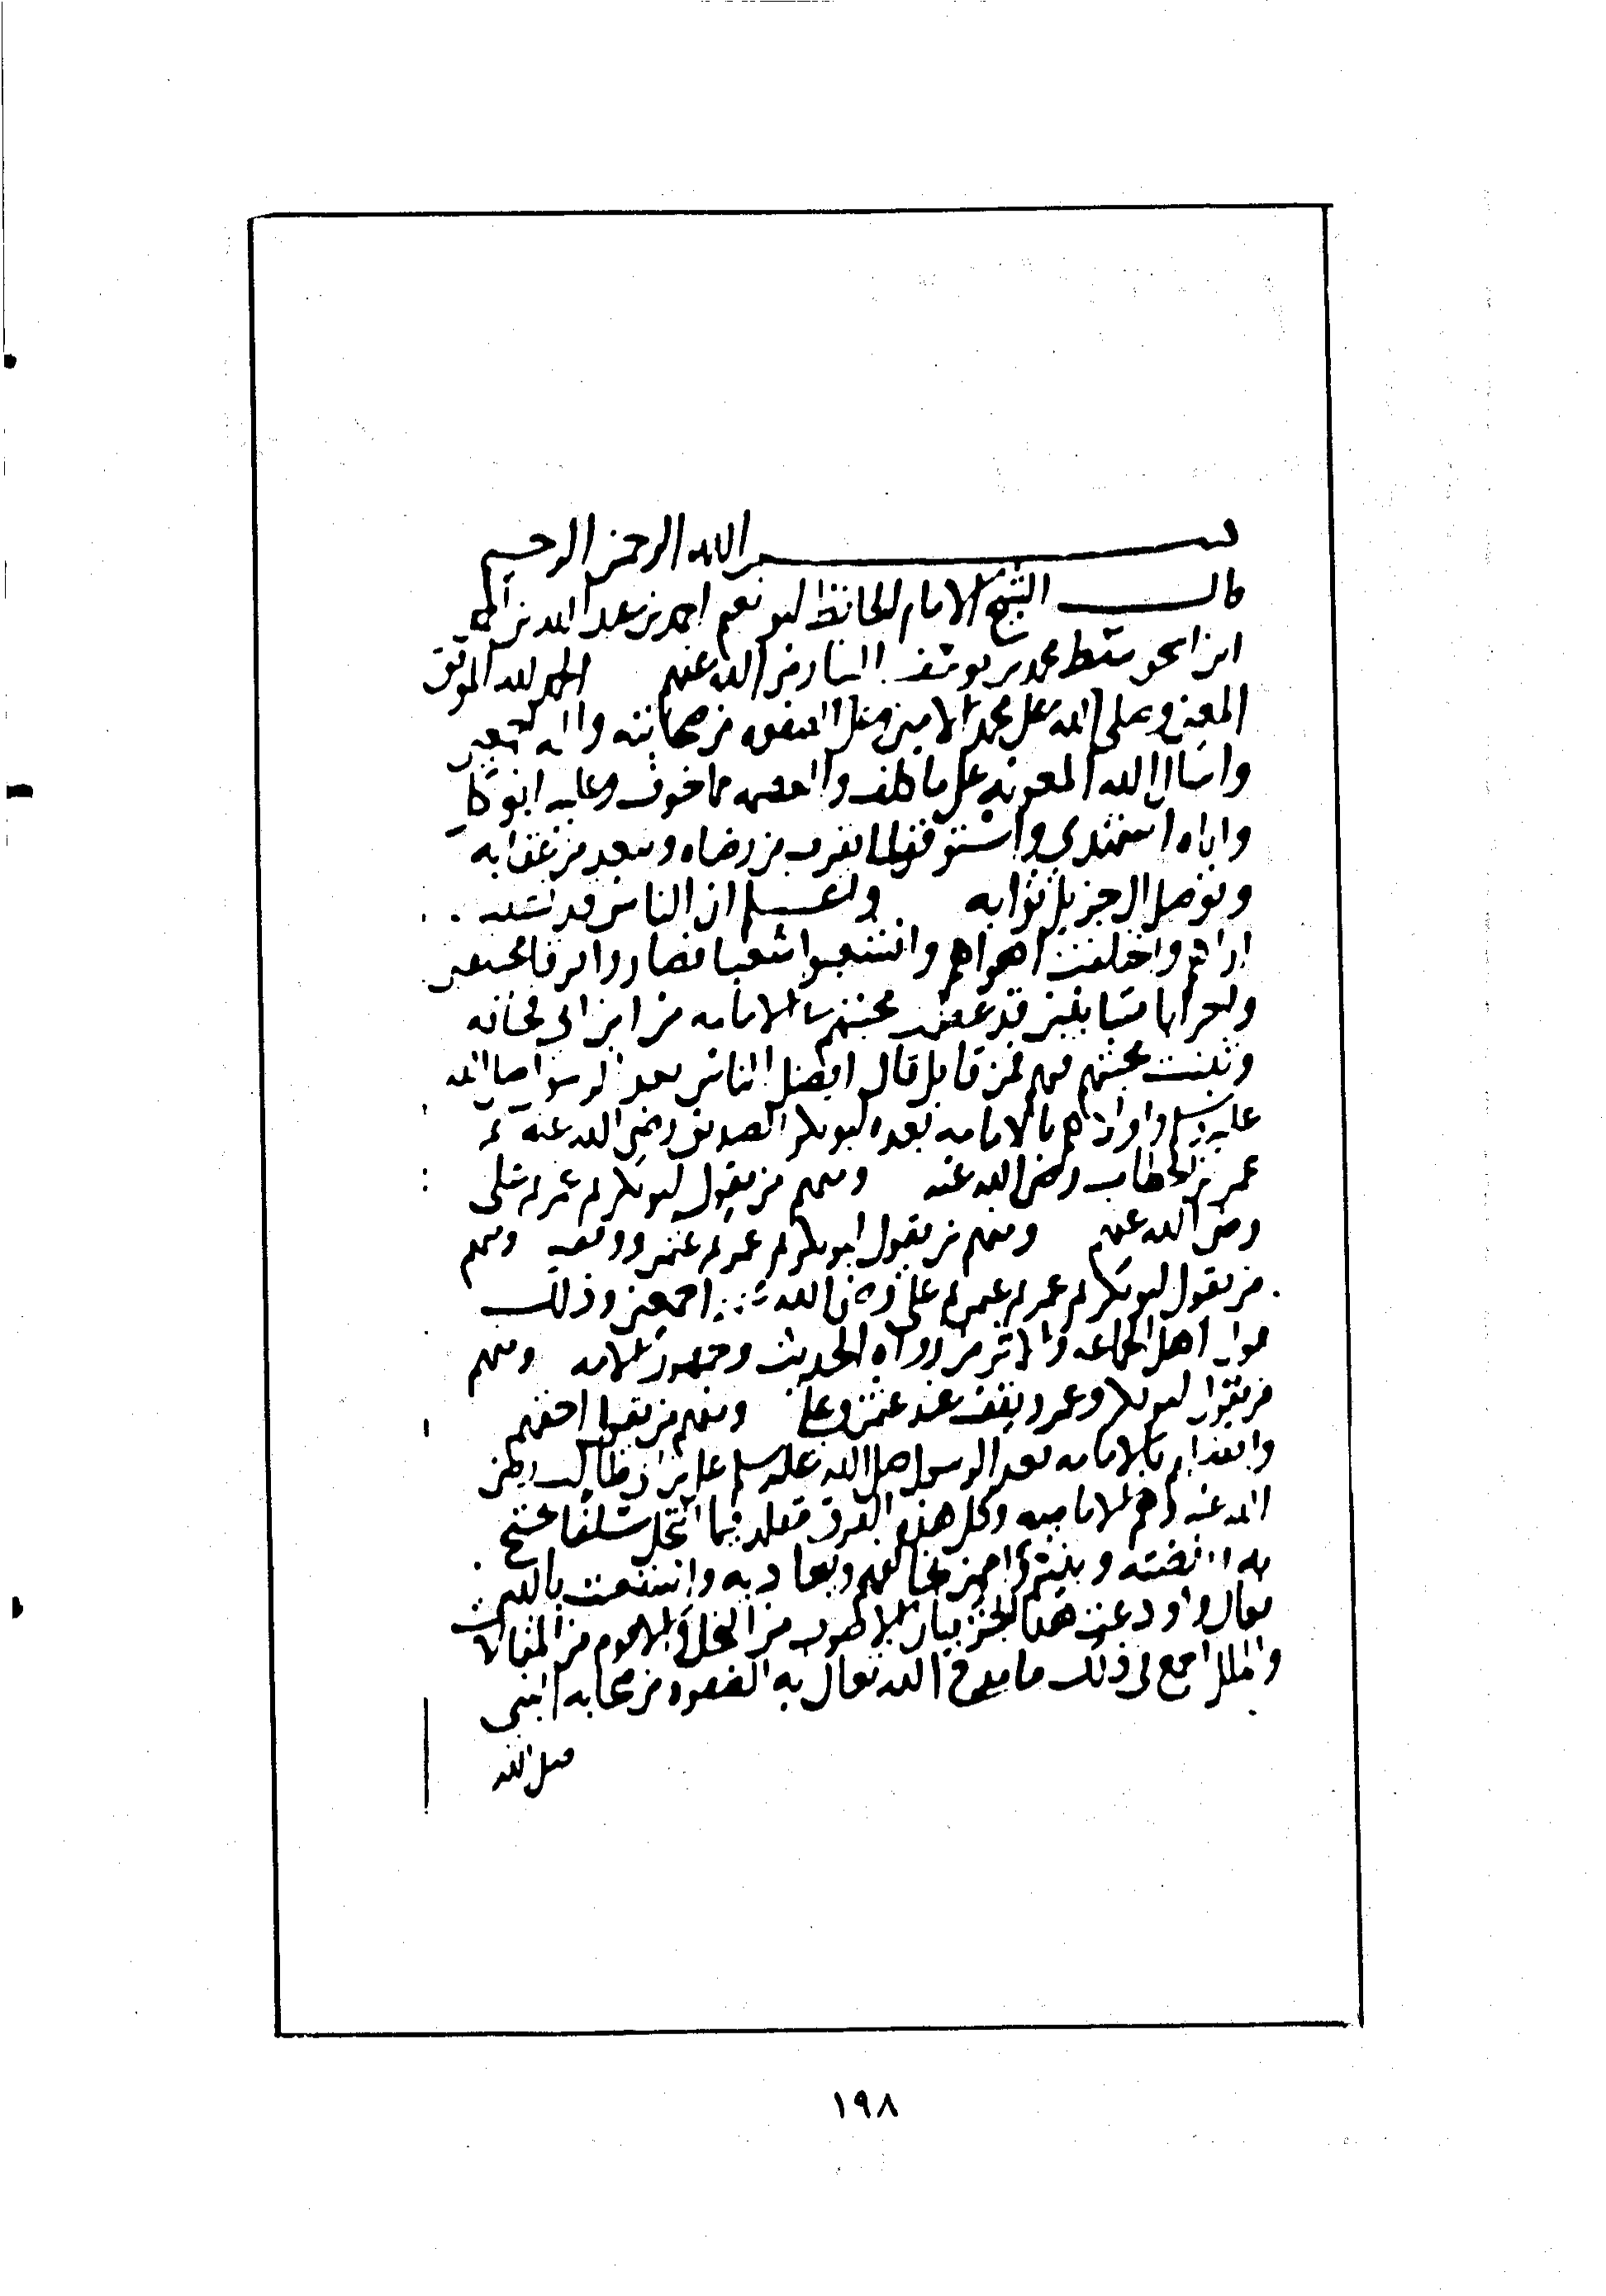 بسم الله الرحمن الرحيم
قال الشيخ الامام الحافظ ابو نعيم احمد بن عبد الله بن احمد
ابن اسحق سبط محمد بن يوسف البنا رضى الله عنهم الحمد لله الموفق
المعين وصلى الله على محمد الامين وعلى الصفوه من صحابته واله اجمعين
واسال الله المعونه على ما كلف والعصمه مما خوف وعليه اتوكل
واياه استهدي واستوفقه لما يقرب من رضاه ويبعد من عقابه
ويوصل الى جزيل ثوابه واعلم ان الناس قد تشتت
اراهم واختلفت اهواهم وانشعبوا شعبا فصاروا فرقا مجتمعين
واحزابا متباينين قد عظمت محنتهم بالامامه من
محبتهم فيهم فمن قايل قال افضل الناس بعد الرسول صلى الله
عليه وسلم واولاهم بالامامه بعده ابو بكر الصديق رضى الله عنه ثم
عمر بن الخطاب رضى الله عنه ومنهم من يقول ابو بكر ثم عمر ثم على
رضى الله عنهم ومنهم من يقول ابو بكر ثم عمر ثم عثمن ووقف ومنهم
من يقول ابو بكر ثم عمر ثم عثمن ثم على رضى الله عنهم اجمعين وذلك
قول اهل الجماعه والاثر من رواه الحديث وجمهور الامه ومنهم
من يقول ابو بكر وعمر ويقف عند عثمن وعلى ومنهم من يقول احقهم
بالامامه بعد الرسول صلى الله عليه وسلم على بن ابى طالب رضى
الله عنه وهم الاماميه وكل هذه الفرق مقلد فيما انتحل سلفا محتج
به من يخالفهم ويعاديه واستعنت بالله
تعالى واودعت هذا الجزء بيان الاصوب من النحل والاقوم من المقالات
والملل اجمع فى ذلك ما مدح الله تعالى به الصفوه من صحابه النبى
صلى الله
١٩٨